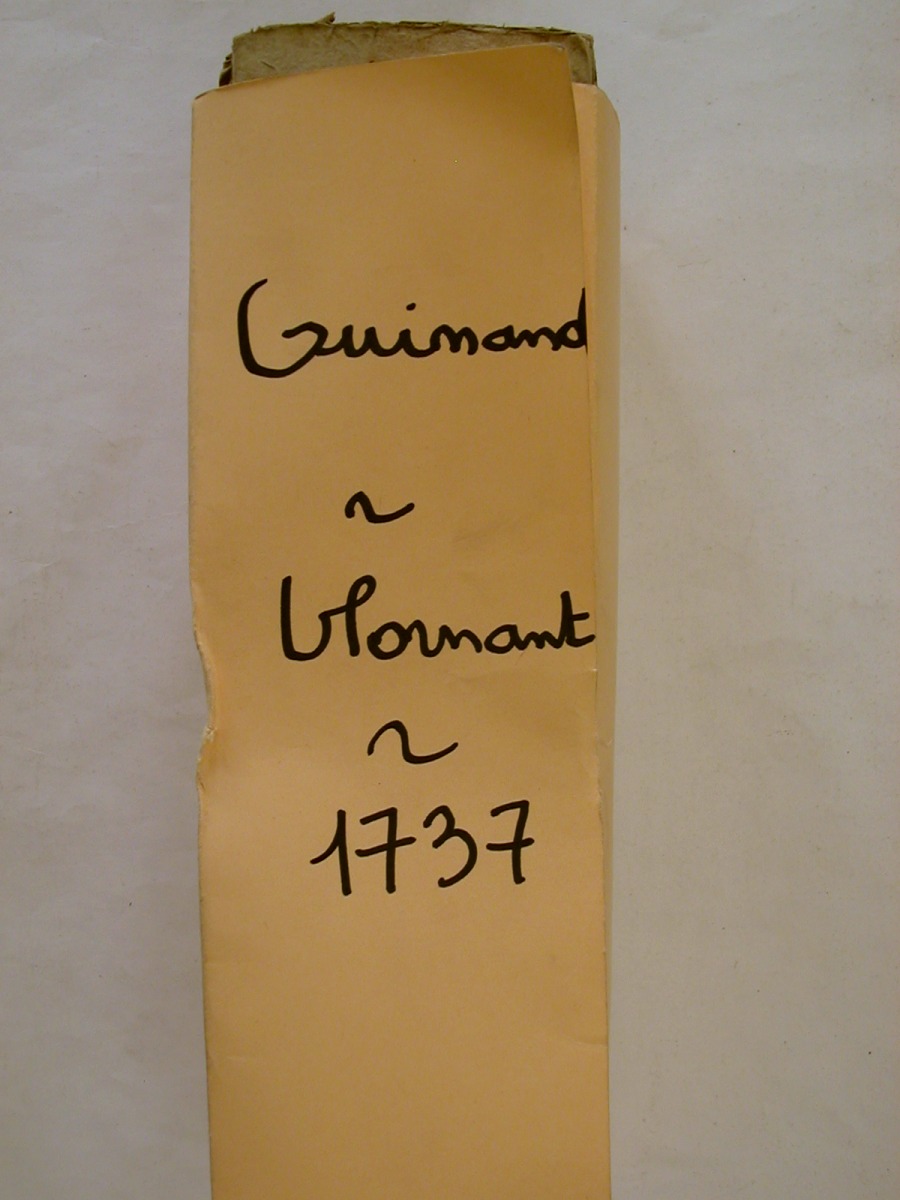 Guinand
~
Mornant
~
1737